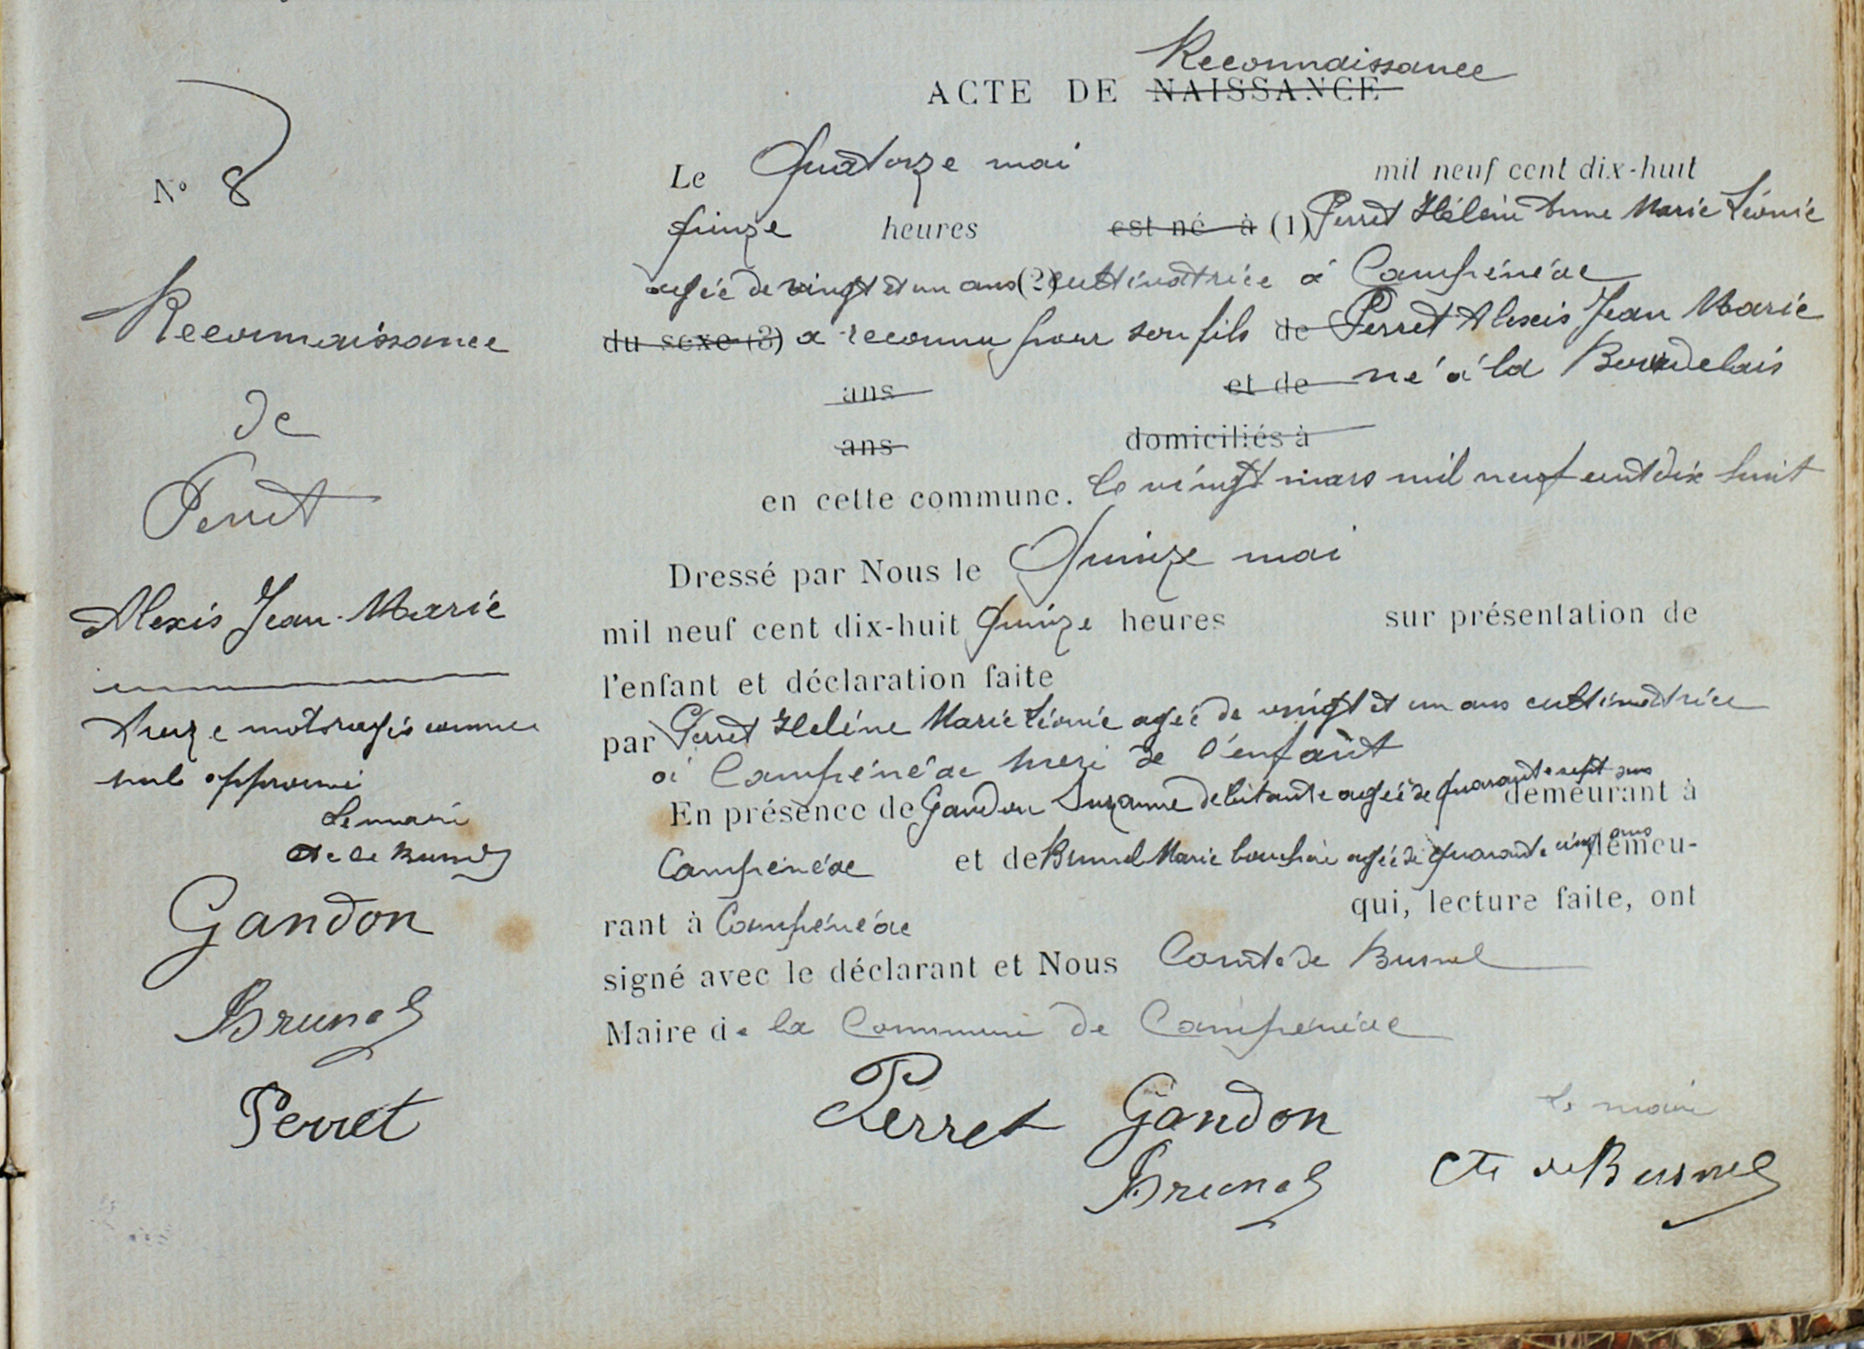 Reconnaissance
ACTE DE NAISSANCE
N° 8
Le Quatorze mai mil neuf cent dix-huit
quinze heures est né à (1) Perret Hélène Anne Marie Léonie
agée de vingt et un ans (2) cultivatrice à Campénéac
du sexe (3) a reconnu pour son fils de Perret Alexis Jean Marie
ans et de né à la
ans domiciliés à
en cette commune. le vingt mars mil neuf cent dix huit
Dressé par Nous le Quinze mai
mil neuf cent dix-huit quinze heures sur présentation de
l'enfant et déclaration faite
par Perret Heléne Marie Léonie agée de vingt et un ans cultivatrice
à Campénéac mere de l'enfant
En présence de Gandon Suzanne debitante agée de quarante sept ans demeurant à
Campénéac et de Brunel Marie bouchère agée de quarante cinq ans demeu-
rant à Campénéac qui, lecture faite, ont
signé avec le déclarant et Nous Comte de Busnel
Maire de la Commune de Campénéac
Perret Gandon
Le maire
Brunel Cte de Busnel
Reconnaissance
de
Perret
Alexis Jean-Marie
mots rayés comme
nul approuvé
Le maire
Cte de Busnel
Gandon
Brunel
Perret